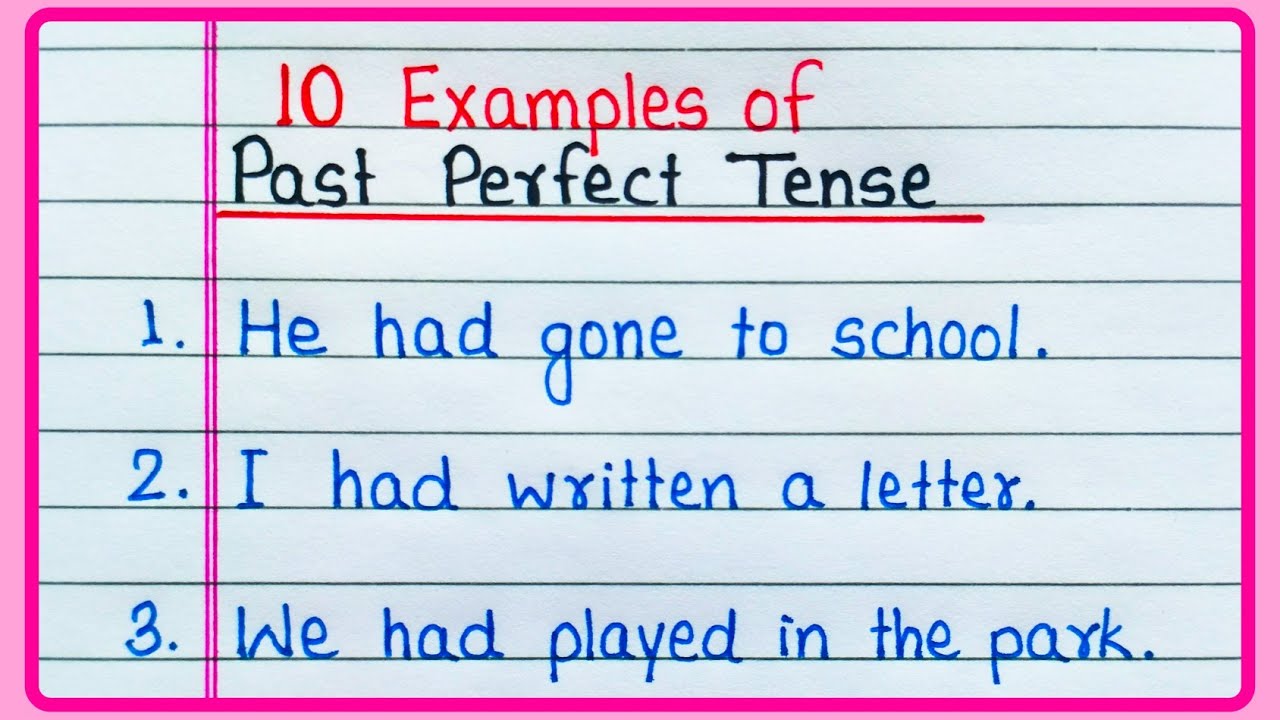 10 Examples of
Past Perfect Tense
1. He had gone to school.
2. I had written a letter.
3. We had played in the park.